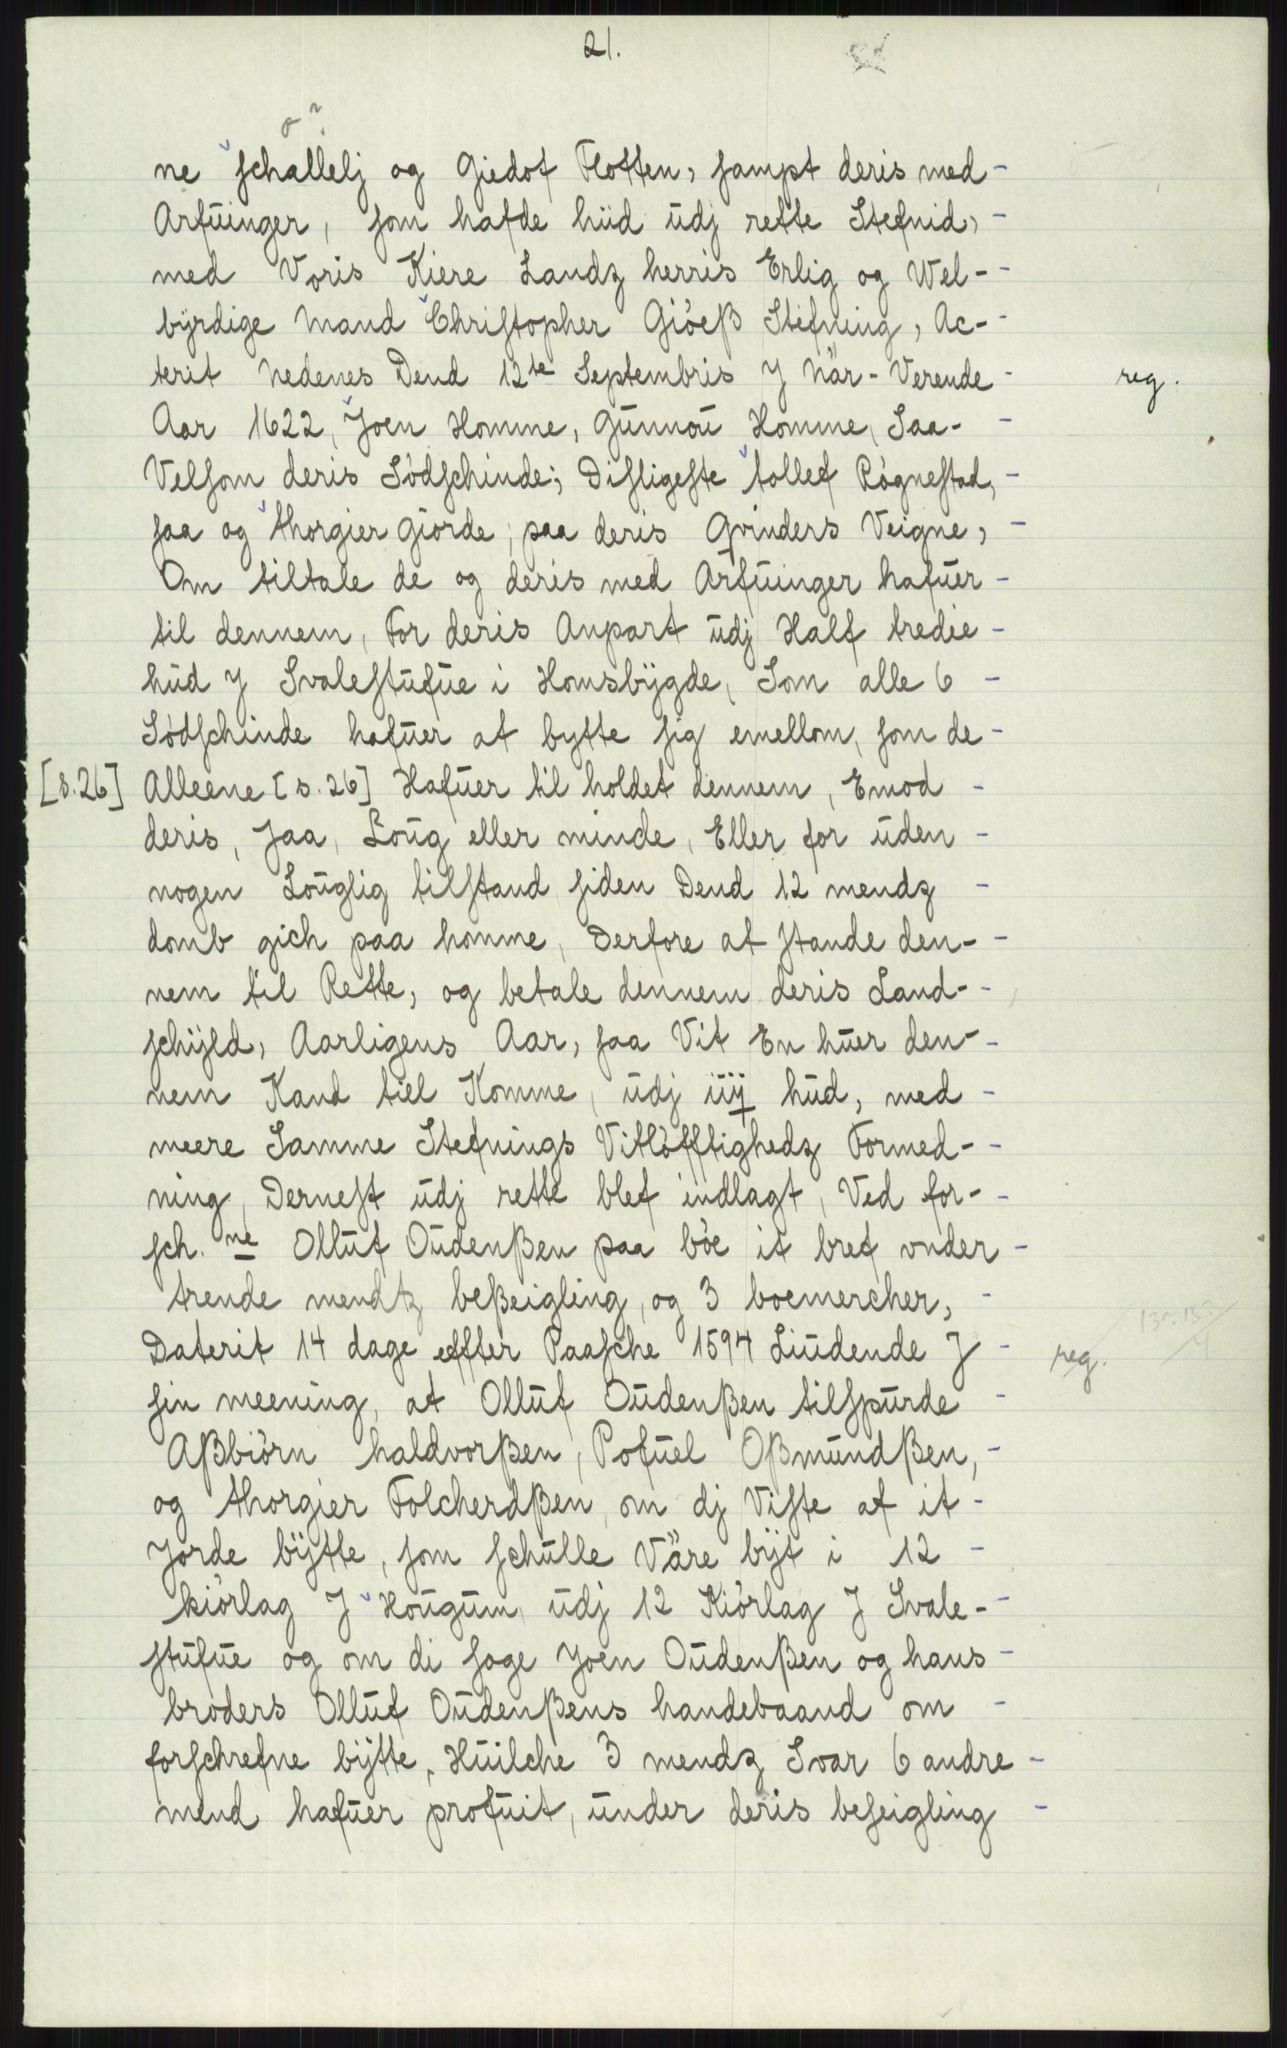 21.
o ?
ne schallelj og Giedof Flotten, sampt deris med-
Arfuinger, som hafde hiid udj rette Stefnid,
med Voris Kiere Landz herris Erlig og Wel-
byrdige Mand Christopher Giöeß Stefning, Ac-
terit Nedenes Dend 12te Septembris J När-Verende
reg.
Aar 1622, Joen Homme, Gunnou Homme, Saa-
Velsom deris Sødschinde; Disligeste tollef Røgnestad,
saa og thorgier Giorde, paa deris Qvinders Veigne,
Om tiltale de og deris med Arfuinger hafuer
til dennem, For deris Anpart udj Half tredie
hud J Svalestufue i Homsbygde, Som alle 6
Sødschinde hafuer at bytte sig emellom, som de
[s.26] Alleene [s.26] Hafuer til holdet dennem, Emod
deris, Jaa, Loug eller minde, Eller for uden
nogen Louglig tilstand siden Dend 12 mendz
domb gich paa homme, Derfore at stande den-
nem til Rette, og betale dennem deris Land-
schyld, Aarligens Aar, saa Vit En huer den-
nem Kand tiel Komme, udj iiij hud, med
meere Samme Stefnings Vitløfftighedz Formed-
ning, Dernest udj rette blef indlagt, Ved for-
sch.ne Olluf Oudenßen paa bøe it bref under
trende mendtz beßeigling, og 3 boemercher,
Daterit 14 dage effter Paasche 1594 Liudende J
reg.
sin meening, at Olluf Oudenßen tilspurde
Aßbiörn haldvorßen, Pofuel Oßmundßen,
og thorgier Folcherdßen, om dj Viste af it
Jorde bytte, som schulle Väre byt i 12
kiörlag J Hougum, udj 12 Kiörlag J Svale-
stufue og om di soge Joen Oudenßen og hans
broders Olluf Oudenßens handebaand om
forschrefne bytte, Huilche 3 mendz Svar 6 andre
mend hafuer profuit, under deris beseigling